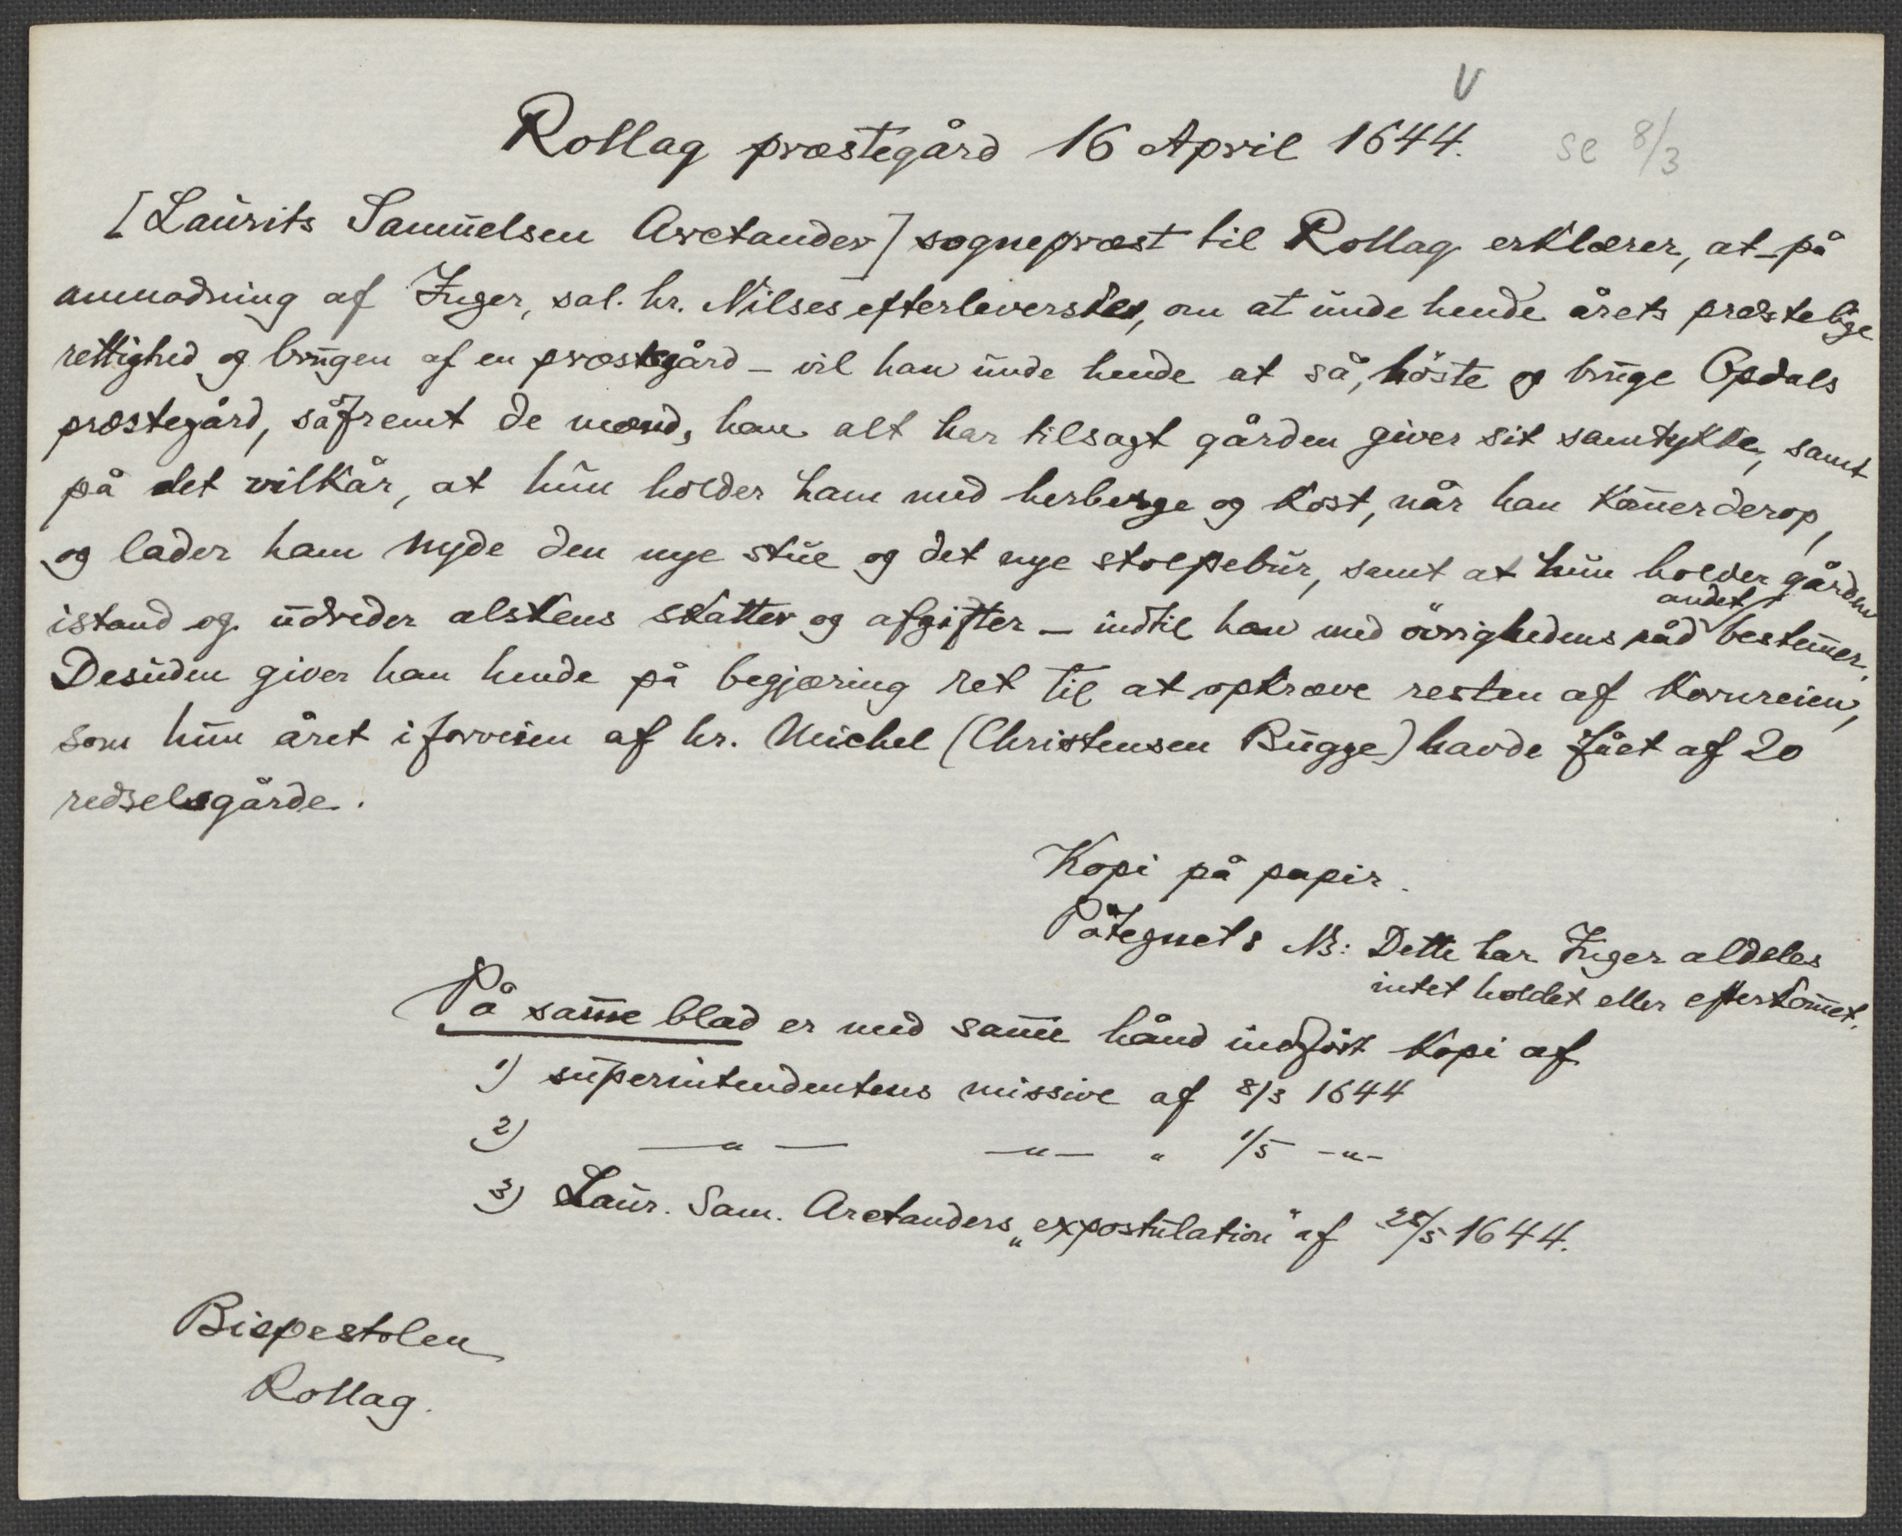 V
Rollag præstegård 16 April 1644. se 8/3
[Laurits Samuelsen Arctander] sognepræst til Rollag erklærer, at på
anmodning af Inger, sal. hr. Nilses efterleverske, om at unde hende årets præstelige
rettighed og brugen af en præstegård – vil han unde hende at så, höste og bruge Opdals
præstegård, såfremt de mænd, han alt har tilsagt gården giver sit samtykke, samt
på det vilkår, at hun holder ham med herberge og kost, når han kom̄er derop,
og lader ham nyde den nye stue og det nye stolpebur, samt at hun holder gården
istand og udreder alskens skatter og afgifter – indtil han med övrighedens råd andet bestem̄er.
Desuden giver han hende på begjæring ret til at opkræve resten af kornreien,
som hun året iforveien af hr. Michel (Christensen Bugge) havde fået af 20
redselsgårde.
Kopi på papir.
Påtegnet: NB: Dette har Inger aldeles
intet holdet eller efterkom̄et.
På sam̄e blad er med sam̄e hånd indfört kopi af
1) superintendentens missive af 8/3 1644
2) —„— —„— „ 1/5 -„-
3) Laur. Sam. Arctanders „expostulation" af 25/5 1644.
Bispestolen
Rollag.